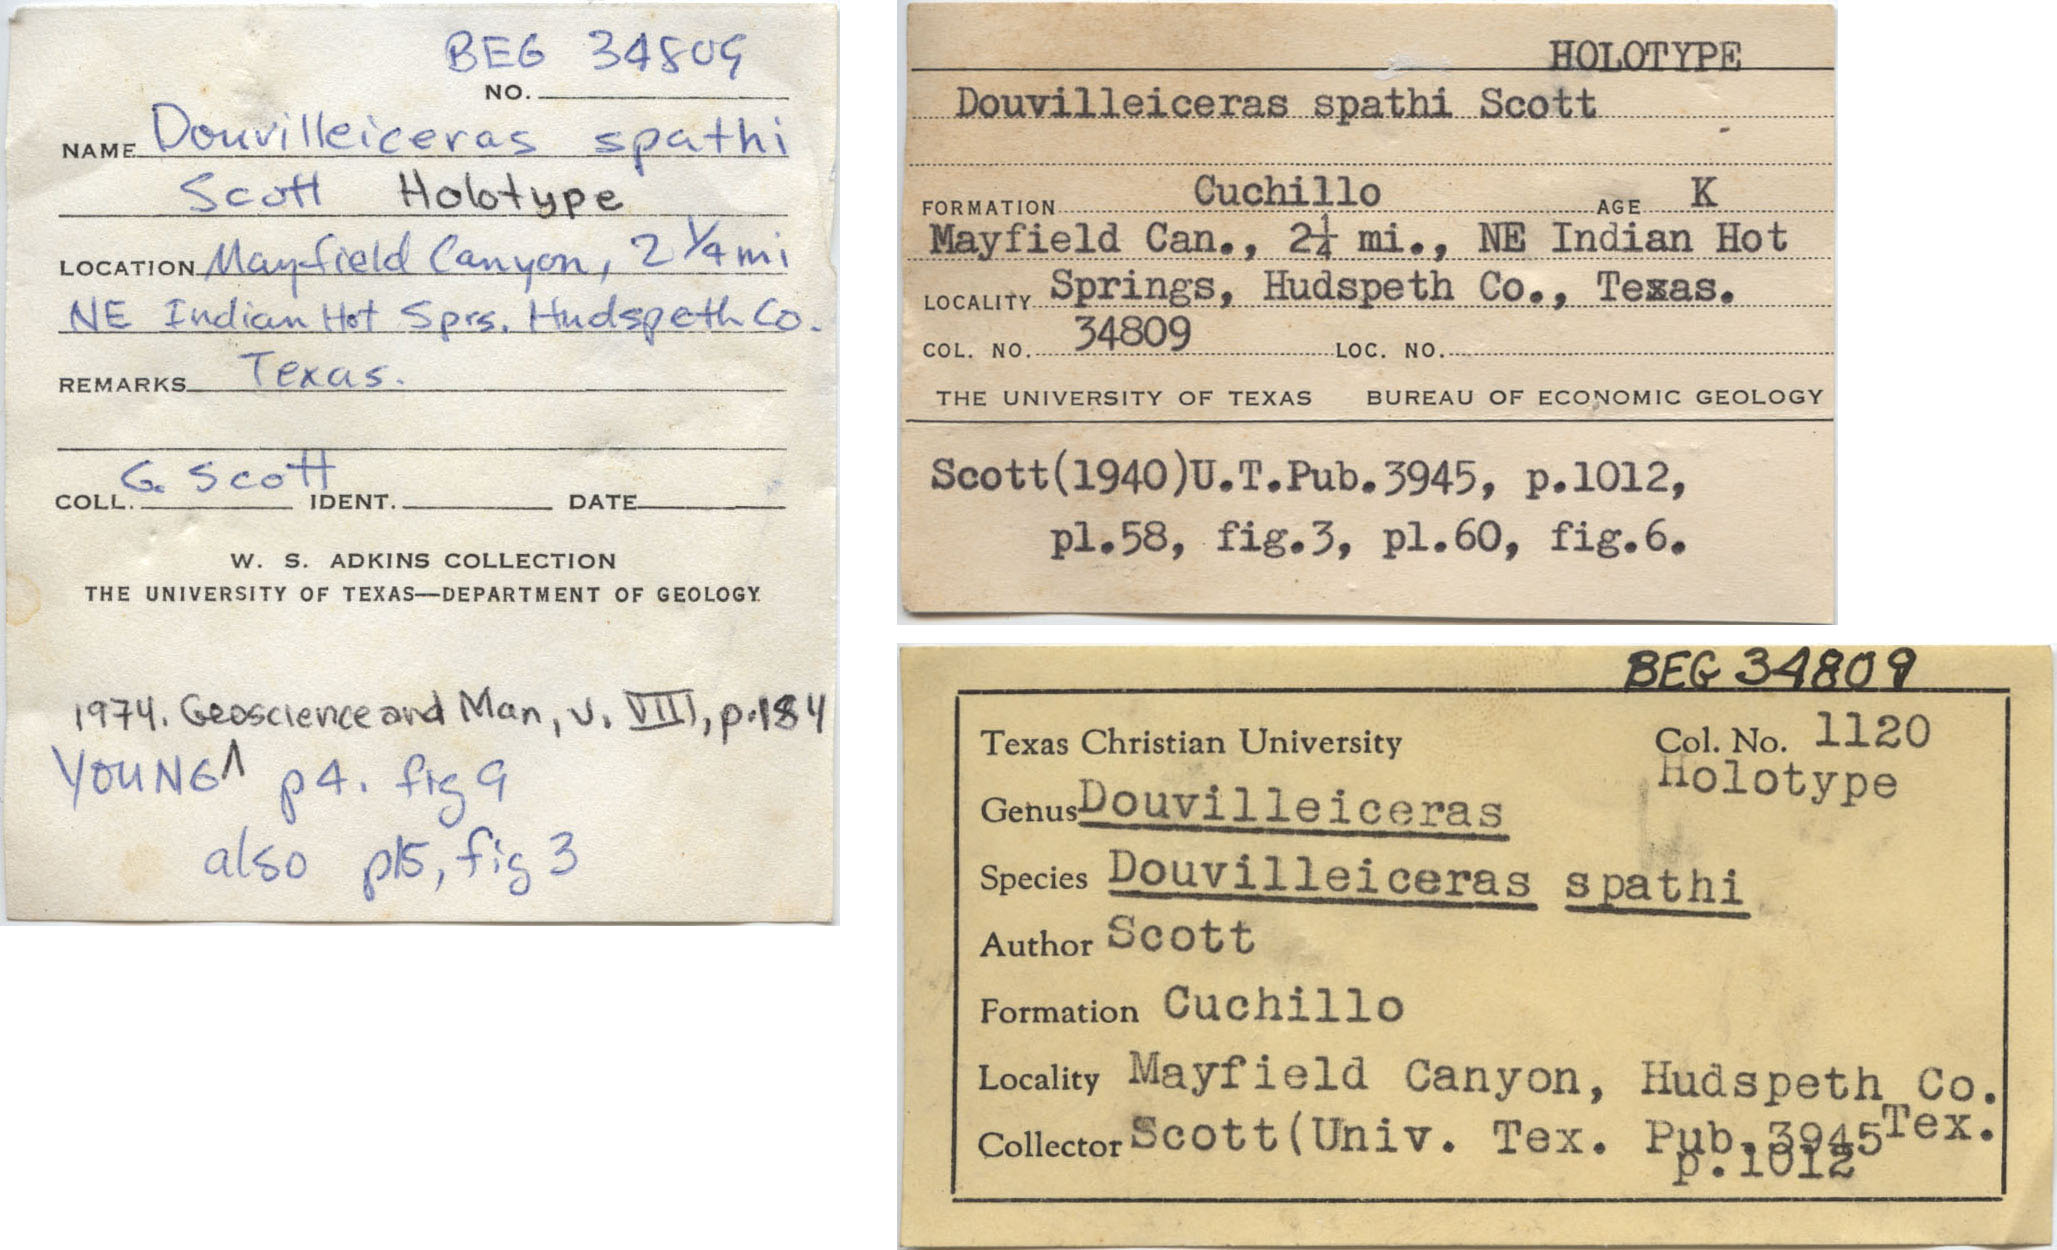 BEG 34809
NO.
NAME Douvilleiceras spathi
Scott Holotype
LOCATION Mayfield Canyon, 2 1/4 mi
NE Indian Hot Sprs. Hudspeth Co.
REMARKS Texas.
G. Scott
COLL. IDENT. DATE
W. S. ADKINS COLLECTION
THE UNIVERSITY OF TEXAS—DEPARTMENT OF GEOLOGY
1974. Geoscience and Man, v. VIII, p.184
YOUNG ∧ p4. fig 9
also pl5, fig 3
HOLOTYPE
Douvilleiceras spathi Scott
FORMATION Cuchillo AGE K
Mayfield Can., 2¼ mi., NE Indian Hot
LOCALITY Springs, Hudspeth Co., Texas.
COL. NO. 34809 LOC. NO.
THE UNIVERSITY OF TEXAS BUREAU OF ECONOMIC GEOLOGY
Scott(1940)U.T.Pub.3945, p.1012,
pl.58, fig.3, pl.60, fig.6.
BEG 34809
Texas Christian University Col. No. 1120
Holotype
Genus Douvilleiceras
Species Douvilleiceras spathi
Author Scott
Formation Cuchillo
Locality Mayfield Canyon, Hudspeth Co.
Tex.
Collector Scott(Univ. Tex. Pub.3945
p.1012